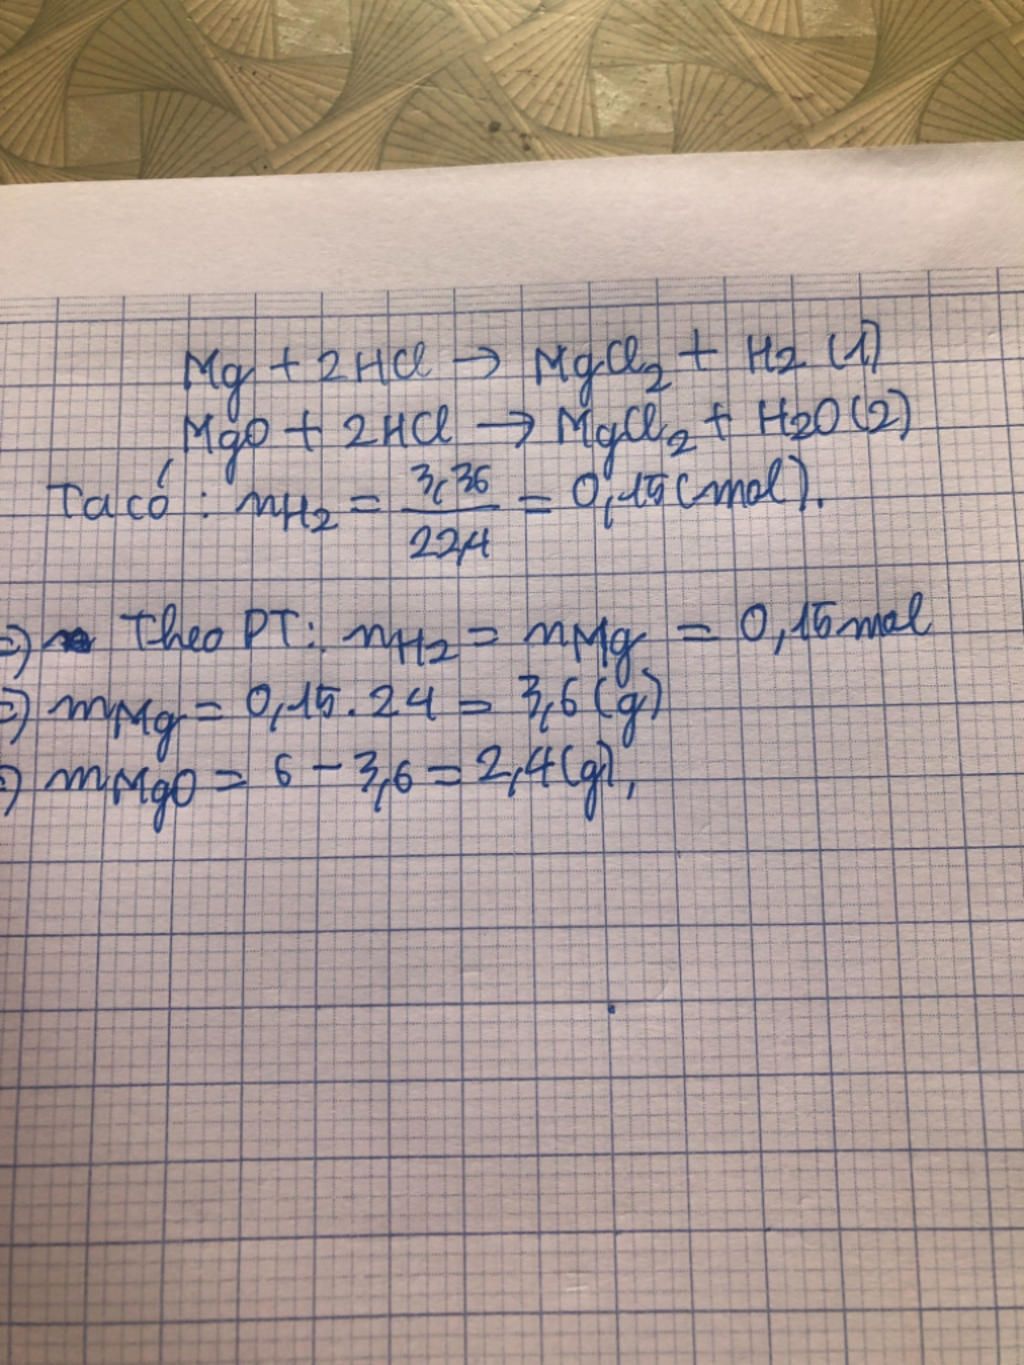 Mg + 2HCl → MgCl2 + H2 (1)
MgO + 2HCl → MgCl2 + H2O (2)
Ta có : nH2 = 3,36/22,4 = 0,15 (mol).
=) Theo PT: nH2 = nMg = 0,15 mol
=) mMg = 0,15.24 = 3,6 (g)
=) mMgO = 6 - 3,6 = 2,4 (g),